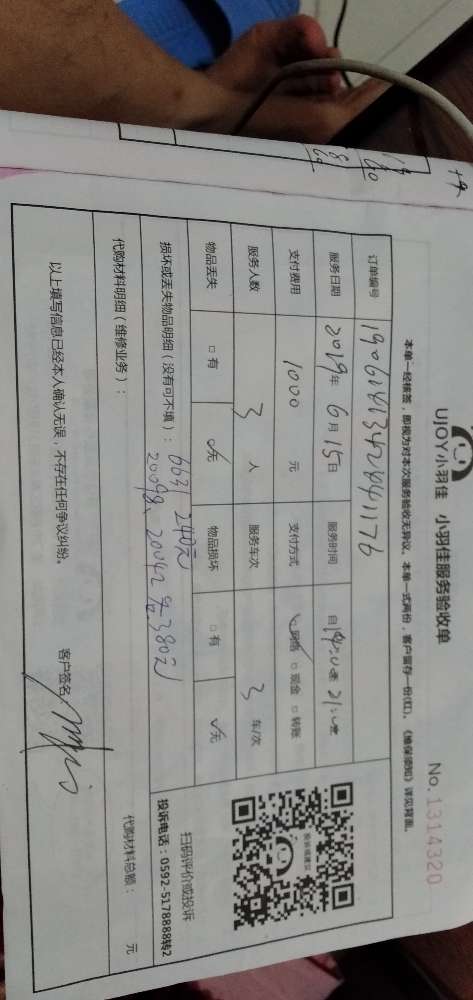 UJOY小羽佳 小羽佳服务验收单
No.1314320
本单一经核签，即视为对本次服务验收无异议。本单一式两份，客户留存一份(红)。《维保须知》详见背面。
订单编号 190614134284411776
服务日期 2019年 6月 15日 服务时间 自19:00至21:00
支付费用 1000 元 支付方式 网络 □现金 □转账
服务人数 3 人 服务车次 3 车/次
物品丢失 □有 √无 物品损坏 □有 √无
损坏或丢失物品明细（没有可不填）： 240元
380元
代购材料明细（维修业务）：
代购材料总额： 元
扫码评价或投诉
投诉电话：0592-5178888转2
以上填写信息已经本人确认无误，不存在任何争议纠纷。
客户签名